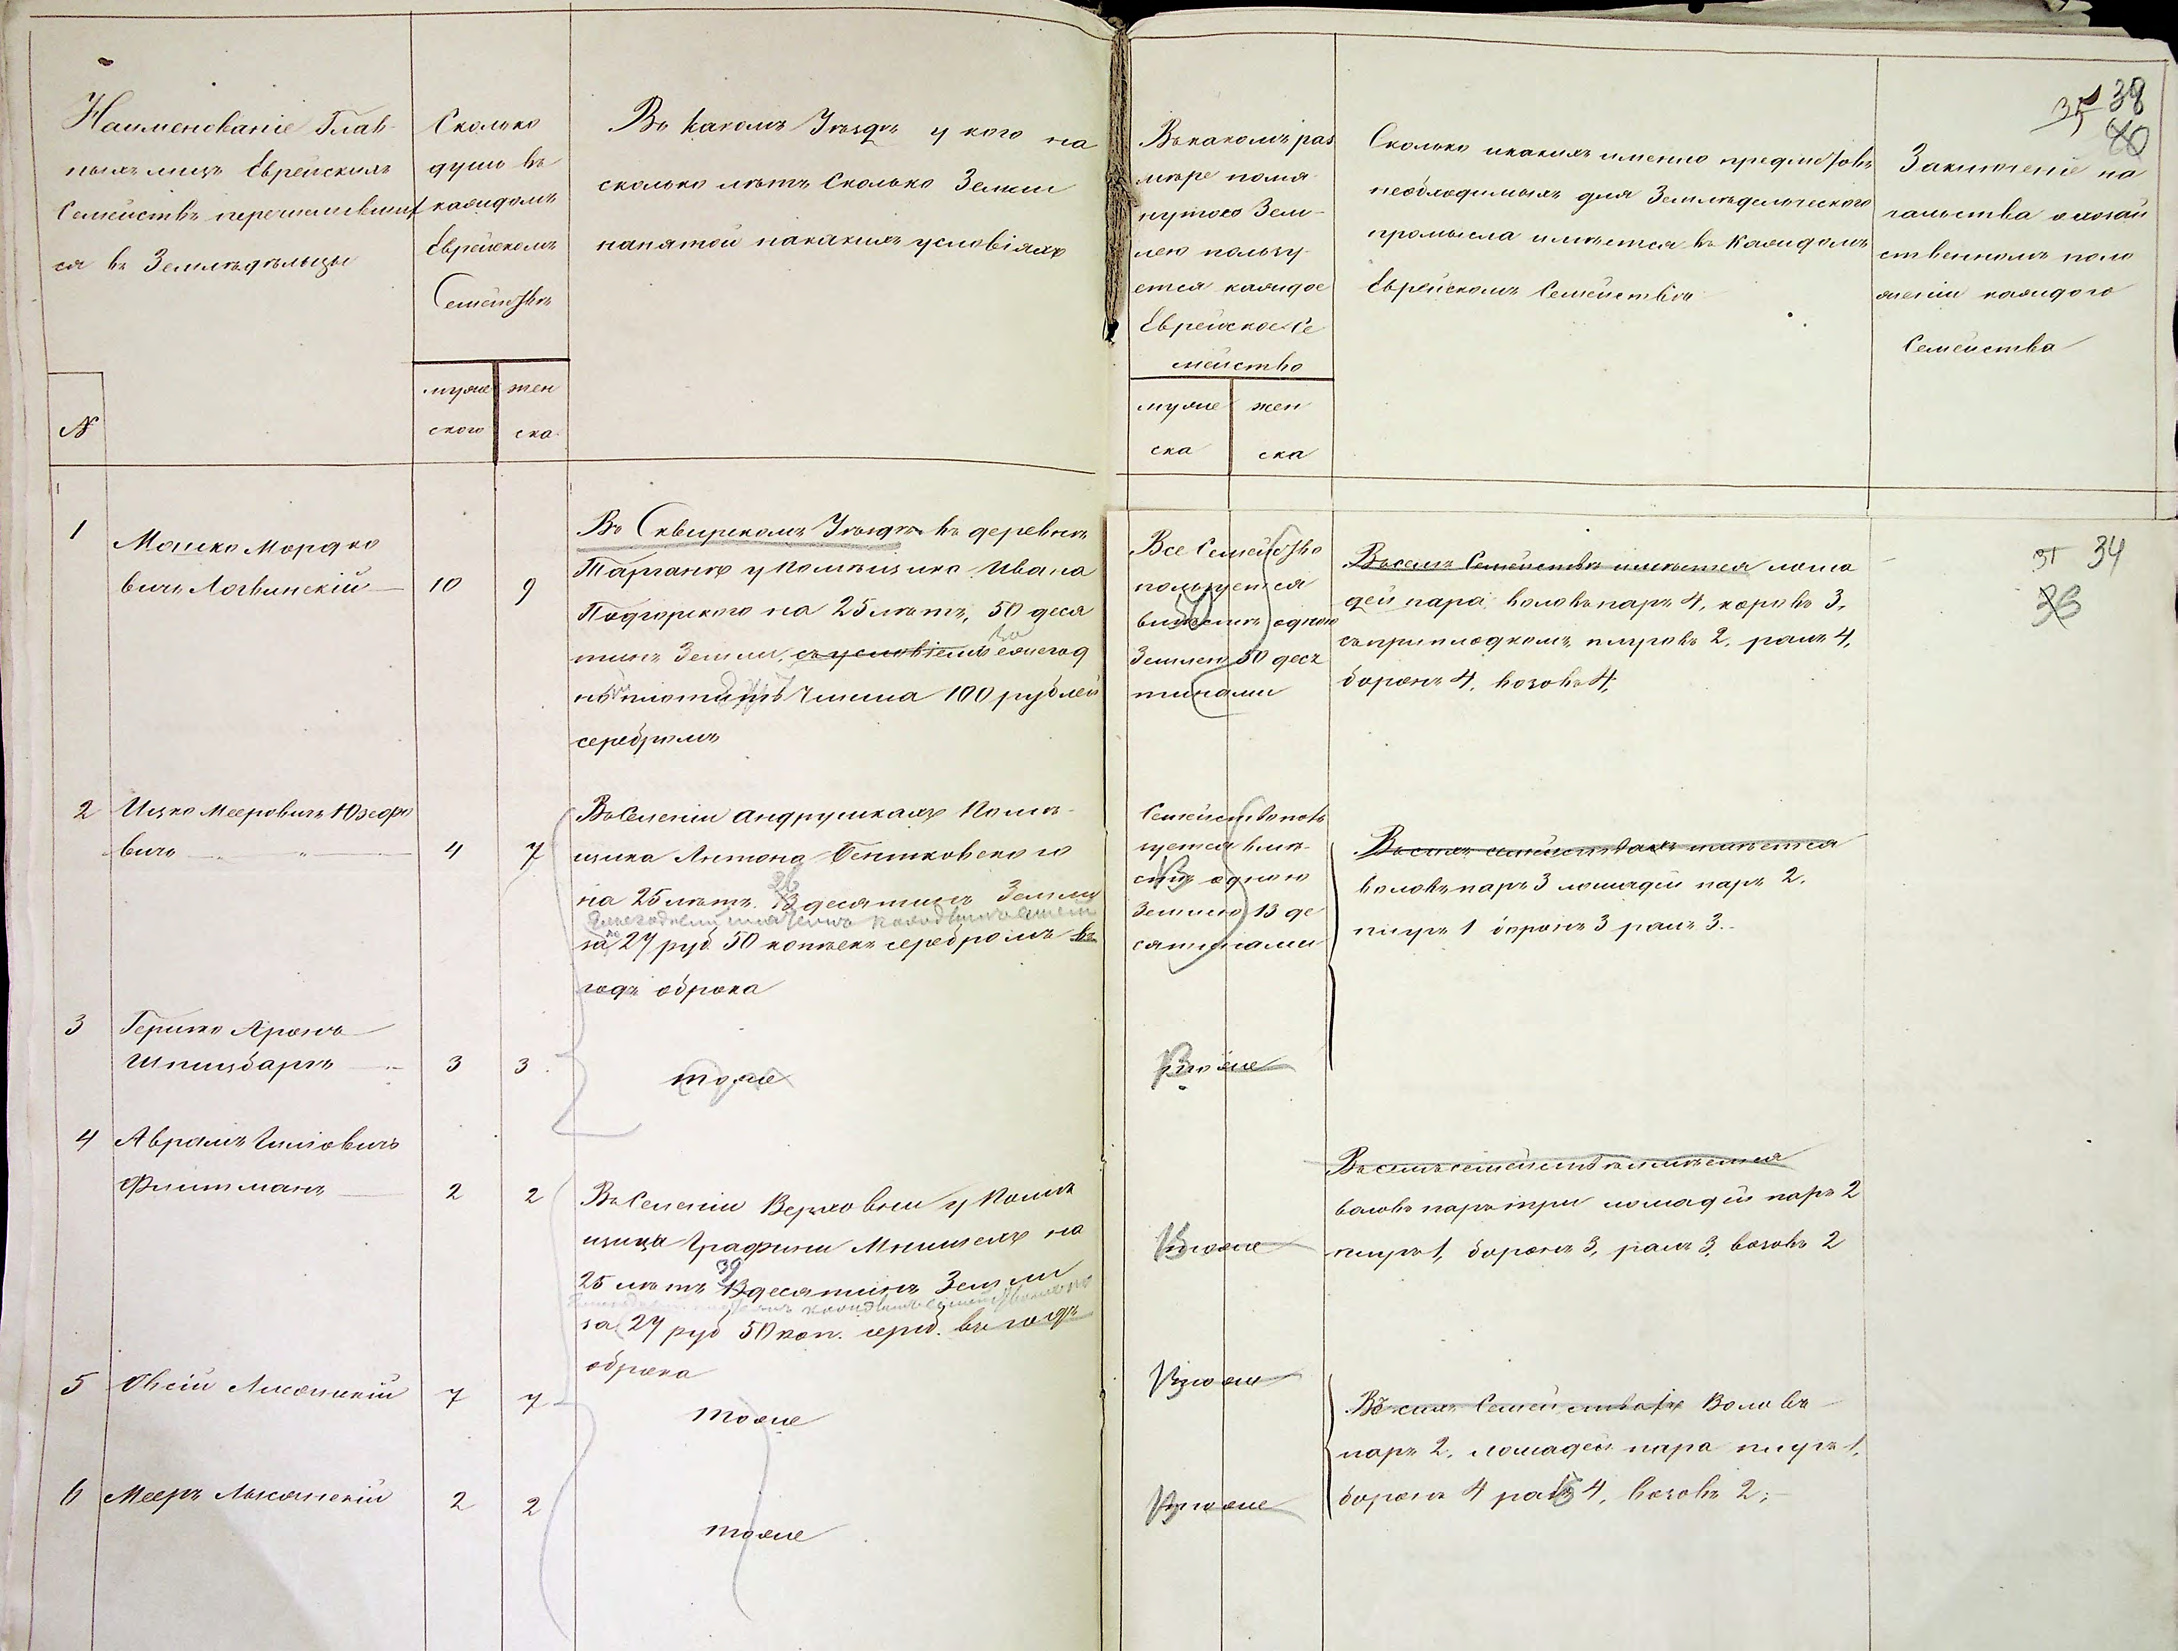 Наименованіе Глав-
ныхъ лицъ Еврейскихъ
Семействъ перечисливших
ся въ Земледѣльцы
№
Сколько
душъ въ
каждомъ
Еврейскомъ
Семействѣ
муже
ского
жен
ска
Въ какомъ Уѣздѣ у кого на
сколько лѣтъ сколько Земли
нанятой на какихъ условіяхъ
Въ какомъ раз
мѣре помя-
нутою Зем-
лею пользу-
ется каждое
Еврейское Се
мейство
муже
ска
жен
ска
Сколько и какихъ именно предметовъ
необходимыхъ для Земледѣльческого
промысла имѣется въ каждомъ
Еврейскомъ Семействѣ
35 38
40
Заключеніе на
чальства о хозяй
ственномъ поло
женіи каждого
Семейства
1
Мошко Мордко
вичъ Логвинскій
10
9
Въ Сквирскомъ Уѣздѣ въ деревнѣ
Тарганѣ у Помѣщика Ивана
Подгорского на 25 лѣтъ, 50 деся
тинъ Земли, съ условіемъ ежегод
но чинша 100 рублей
серебромъ
Все Семейство
пользуется
вмѣстѣ одною
Землею 50 деся
тинами
Въ семъ Семействѣ имѣется лоша
дей пара, воловъ паръ 4, коровъ 3,
съ приплодкомъ, плуговъ 2, ралъ 4,
боронъ 4, возовъ 4,
34
36
2
Ицко Мееровичъ Юзефо
вичъ
4
7
Въ Селеніи Андрушкахъ Помѣ-
щика Антона Бентковского
на 25 лѣтъ 26 13 десятинъ Земли
за 27 руб 50 копѣекъ серебромъ въ
годъ оброка
Семейство поль
зуется вмѣ-
стѣ одною
Землею 13 де
сятинами
Въ сихъ семействахъ имѣется
воловъ паръ 3 лошадей паръ 2,
плугъ 1 боронъ 3 ралъ 3.
3
Гершко Аронъ
Шпицбаргъ
3
3
тоже
тоже
4
Аврамъ
Фишманъ
2
2
Въ Селеніи Верховни у Помѣ
щицы Графини Мнишехъ на
25 лѣтъ 39 13 десятинъ Земли
за 27 руб 50 коп. сереб. въ годъ
оброка
тоже
Въ семъ семействѣ имѣется
воловъ паръ три лошадей паръ 2
плугъ 1, боронъ 3, ралъ 3, возовъ 2
5
Овсій Лисянскій
7
7
тоже
тоже
Въ сихъ Семействахъ Воловъ
паръ 2, лошадей пара плугъ 1,
боронъ 4 ралъ 4, возовъ 2;
6
Мееръ Лисянскій
2
2
тоже
тоже